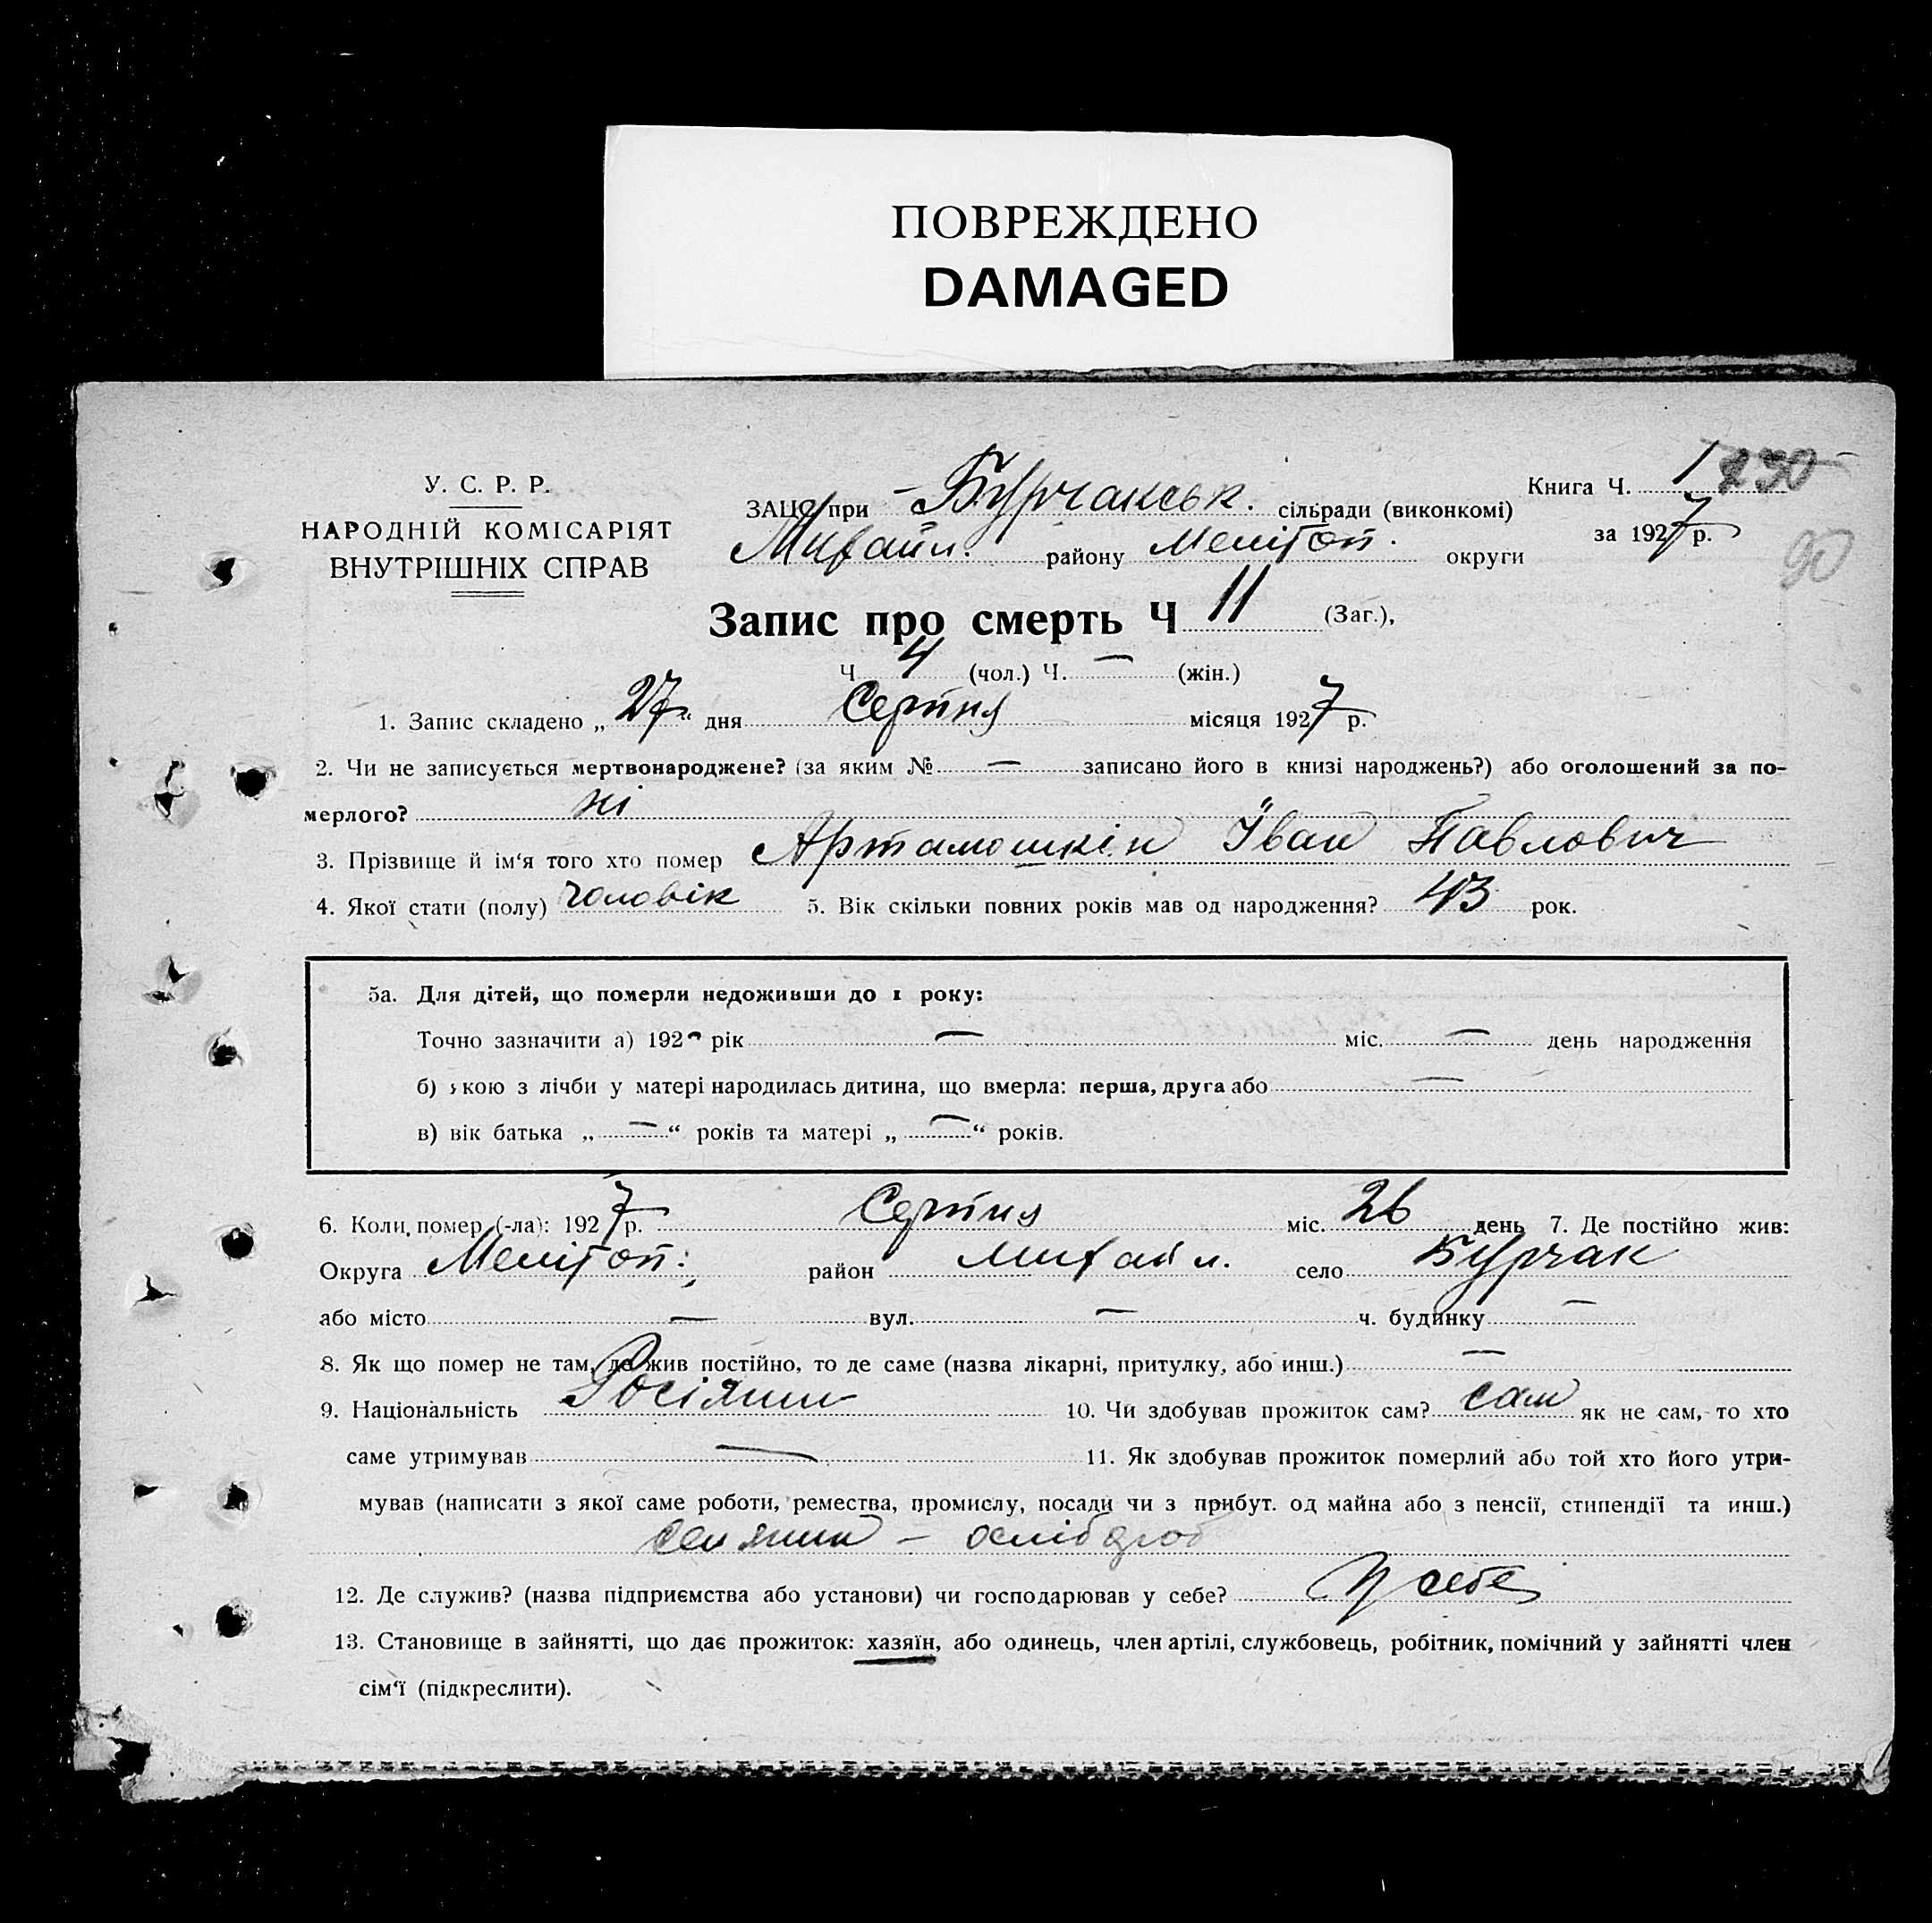 ПОВРЕЖДЕНО
DAMAGED
У. С. Р. Р.
НАРОДНІЙ КОМІСАРІЯТ
ВНУТРІШНІХ СПРАВ
ЗАЦС при Бурчакськ. сільради (виконкомі)
Михайл. району Мелітоп. округи
Книга Ч. 1 230
за 1927 р.
90
Запис про смерть Ч 11 (Заг.),
Ч 4 (чол.) Ч. — (жін.)
1. Запис складено „27“ дня Серпня місяця 1927 р.
2. Чи не записується мертвонароджене? (за яким № — записано його в книзі народжень?) або оголошений за по-
мерлого? ні
3. Прізвище й ім‘я того хто помер Артамошкін Іван Павлович
4. Якої стати (полу) чоловік 5. Вік скільки повних років мав од народження? 43 рок.
5а. Для дітей, що померли недоживши до 1 року:
Точно зазначити а) 192 рік — міс. — день народження
б) якою з лічби у матері народилась дитина, що вмерла: перша, друга або —
в) вік батька „—“ років та матері „—“ років.
6. Коли помер (-ла): 1927 р. Серпня міс. 26 день 7. Де постійно жив:
Округа Мелітоп. район Михайл. село Бурчак
або місто — вул. — ч. будинку —
8. Як що помер не там, де жив постійно, то де саме (назва лікарні, притулку, або инш.) —
9. Національність Росіянин 10. Чи здобував прожиток сам? сам як не сам, то хто
саме утримував — 11. Як здобував прожиток померлий або той хто його утри-
мував (написати з якої саме роботи, ремества, промислу, посади чи з прибут. од майна або з пенсії, стипендії та инш.)
селянин —
12. Де служив? (назва підприємства або установи) чи господарював у себе? У себе
13. Становище в зайнятті, що дає прожиток: хазяїн, або одинець, член артілі, службовець, робітник, помічний у зайнятті член
сім‘ї (підкреслити).